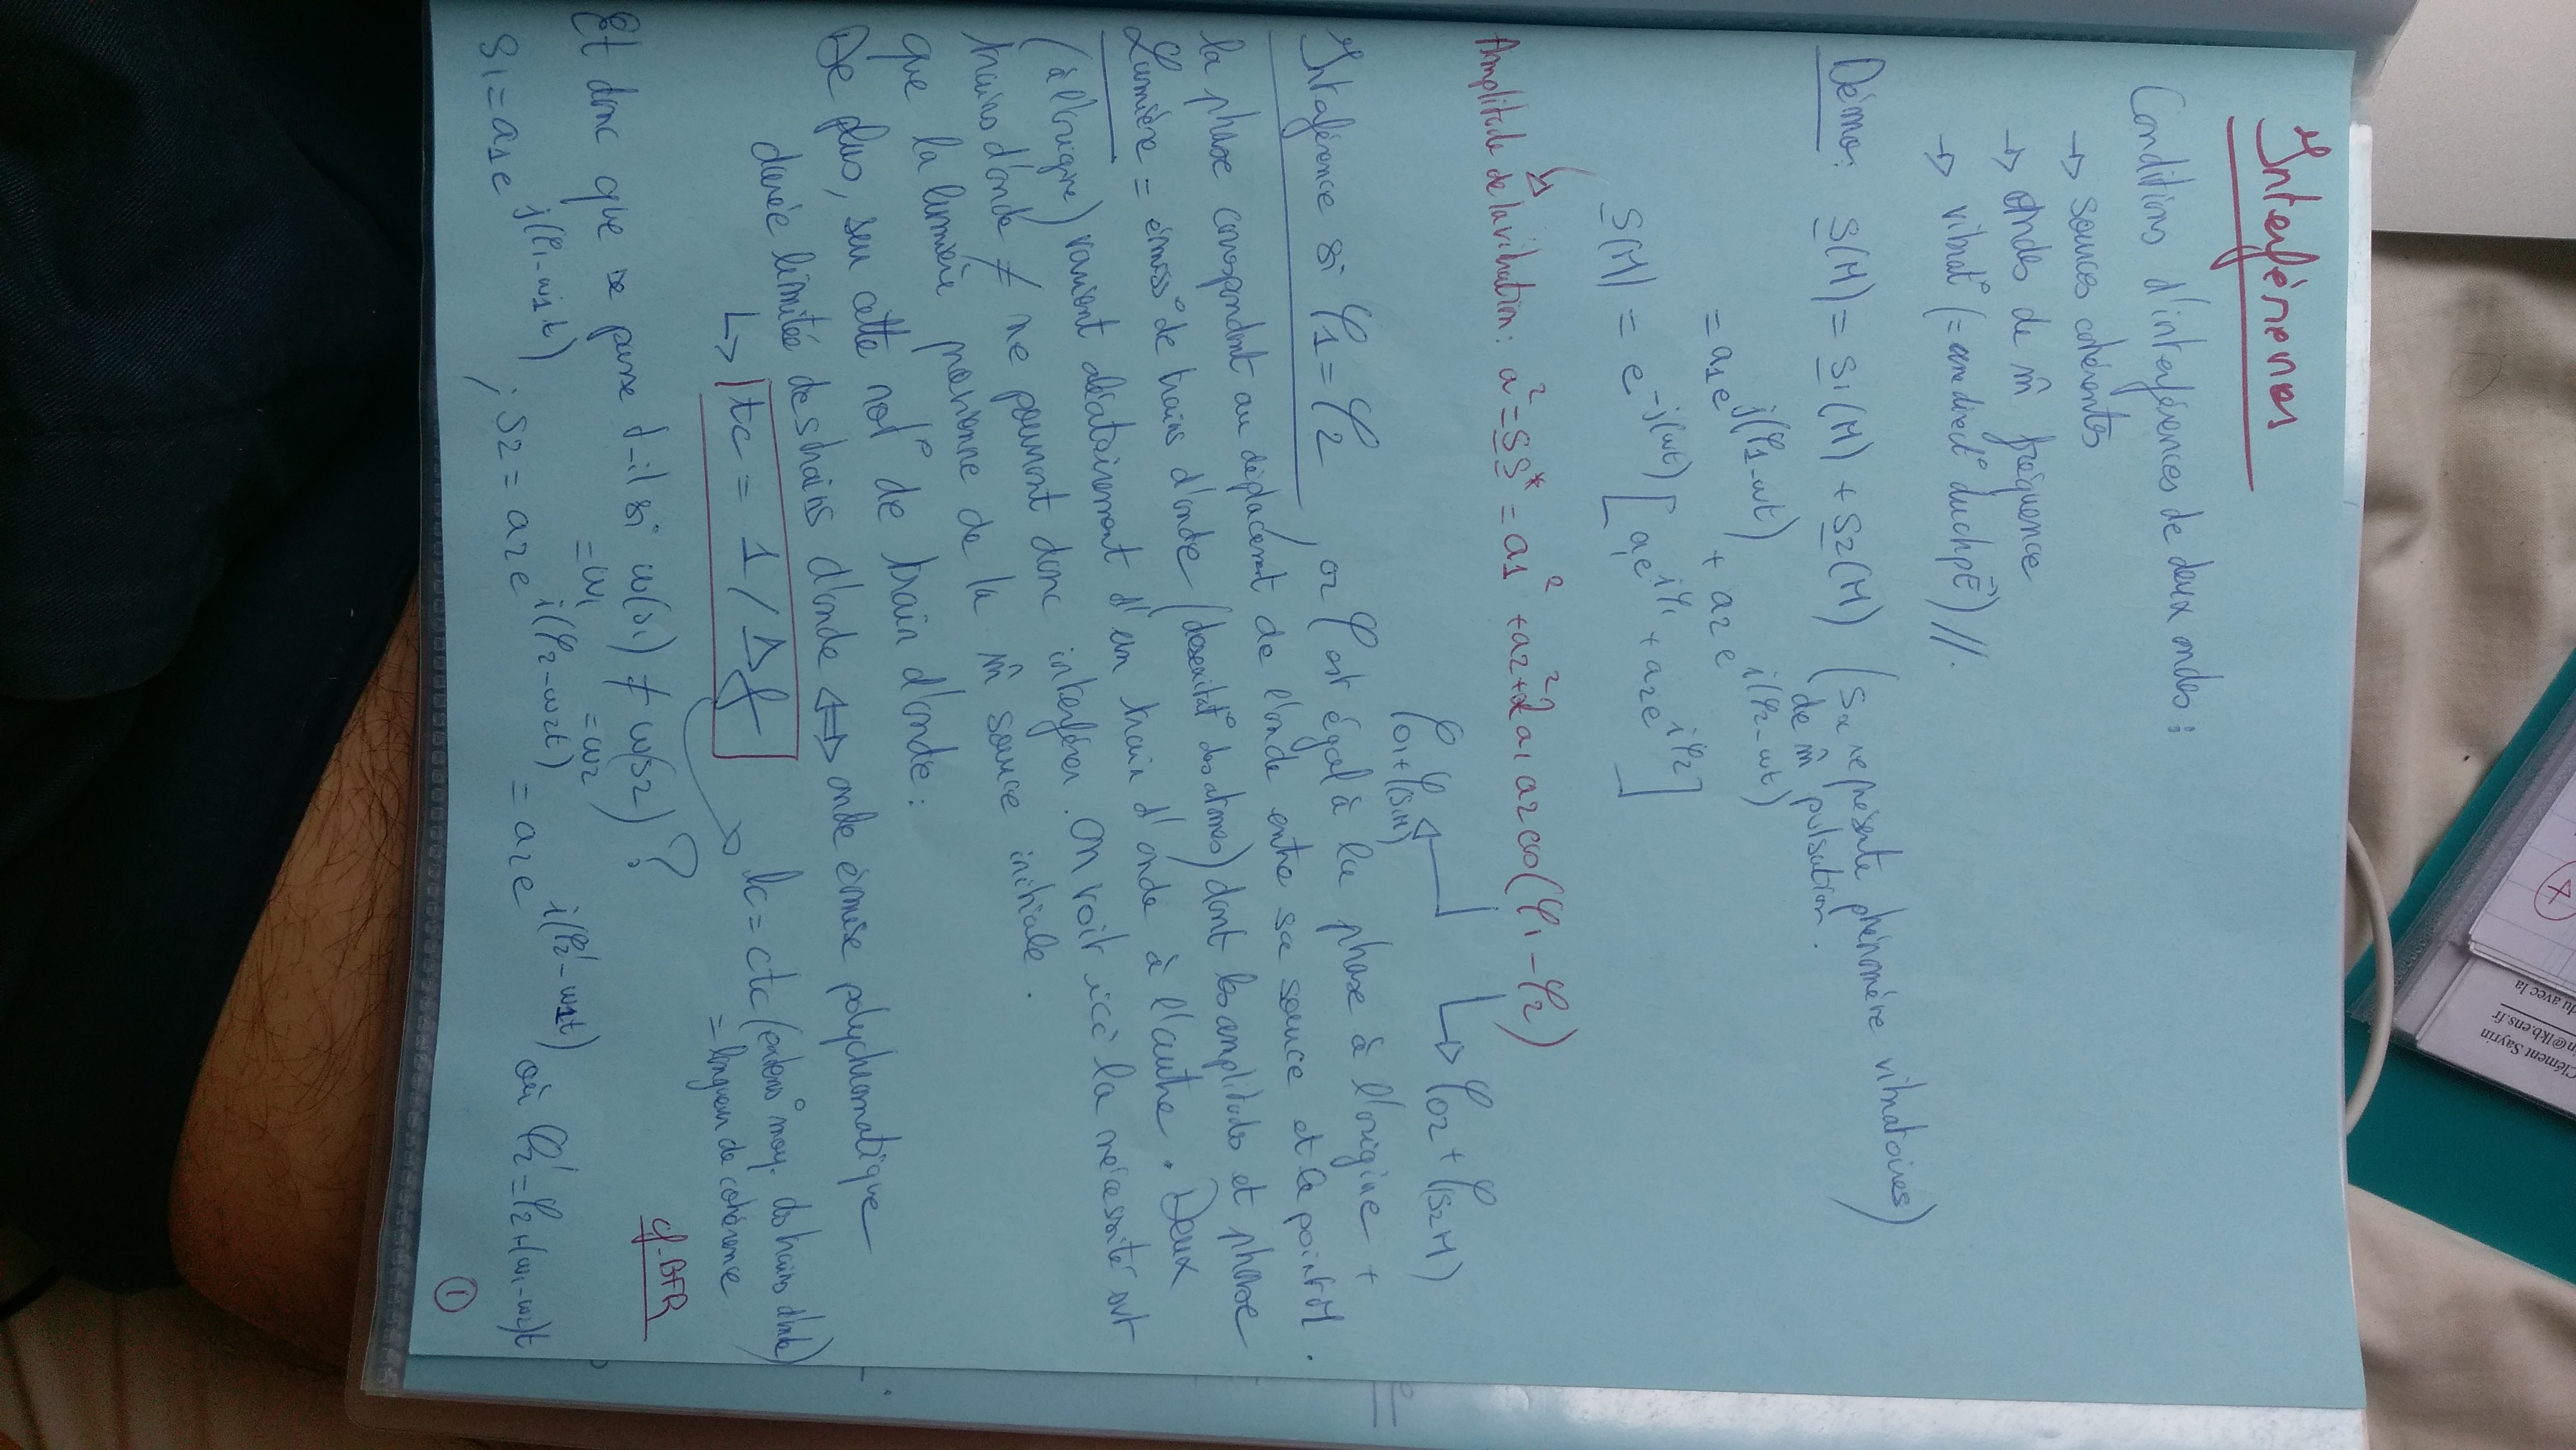 Interférences
Conditions d'interférences de deux ondes :
→ sources cohérentes
→ ondes de m̂ fréquence
→ vibrat° (= une direct° du chp E) //.
Démo : S(M) = S1(M) + S2(M) (Sx représente phénomène vibratoires)
de m̂ pulsation.
= a1e^j(φ1-ωt) + a2e^i(φ2-ωt)
S(M) = e^-j(ωt) [a1e^iφ1 + a2e^iφ2]
Amplitude de la vibration : a² = SS* = a1² + a2² + 2a1a2cos(φ1-φ2)
φ01 + φ(S1M)
φ02 + φ(S2M)
Interférence si φ1 = φ2, or φ est égal à la phase à l'origine +
la phase correspondant au déplacement de l'onde entre sa source et le point M.
Lumière = émiss° de trains d'onde (désexcitat° des atomes) dont les amplitudes et phase
(à l'origine) varient aléatoirement d'un train d'onde à l'autre. Deux
trains d'onde ≠ ne pourront donc interférer. On voit ici la nécessité
que la lumière provienne de la m̂ source initiale.
De plus, seu cette not° de train d'onde :
durée limitée des trains d'onde ⟺ onde émise polychromatique
↳ tc = 1/Δf
lc = ctc (extens° moy. des trains d'onde)
= longueur de cohérence
Et donc que se passe t-il si ω(S1) ≠ ω(S2) ?
= ω1 = ω2
cf. BFR
S1 = a1e^j(φ1-ω1t) ; S2 = a2e^i(φ2-ω2t) = a2e^i(φ2'-ω1t) où φ2' = φ2+(ω1-ω2)t
1
Clément Sayrin
n@lkb.ens.fr
du avec la